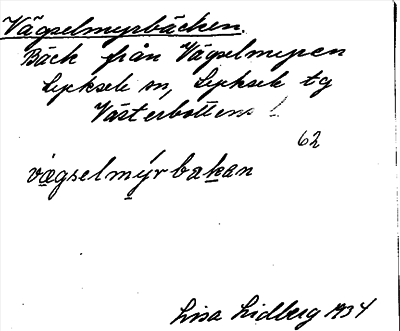 Vägselmyrbäcken.
Bäck från Vägselmyren
Lycksele sn, Lycksele tg
Västerbottens l.
62
vägselmýrbakan
Lisa Lidberg 1934